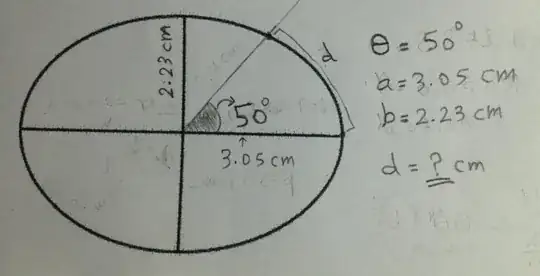 2.23 cm
50°
3.05 cm
d
θ = 50°
a = 3.05 cm
b = 2.23 cm
d = ? cm